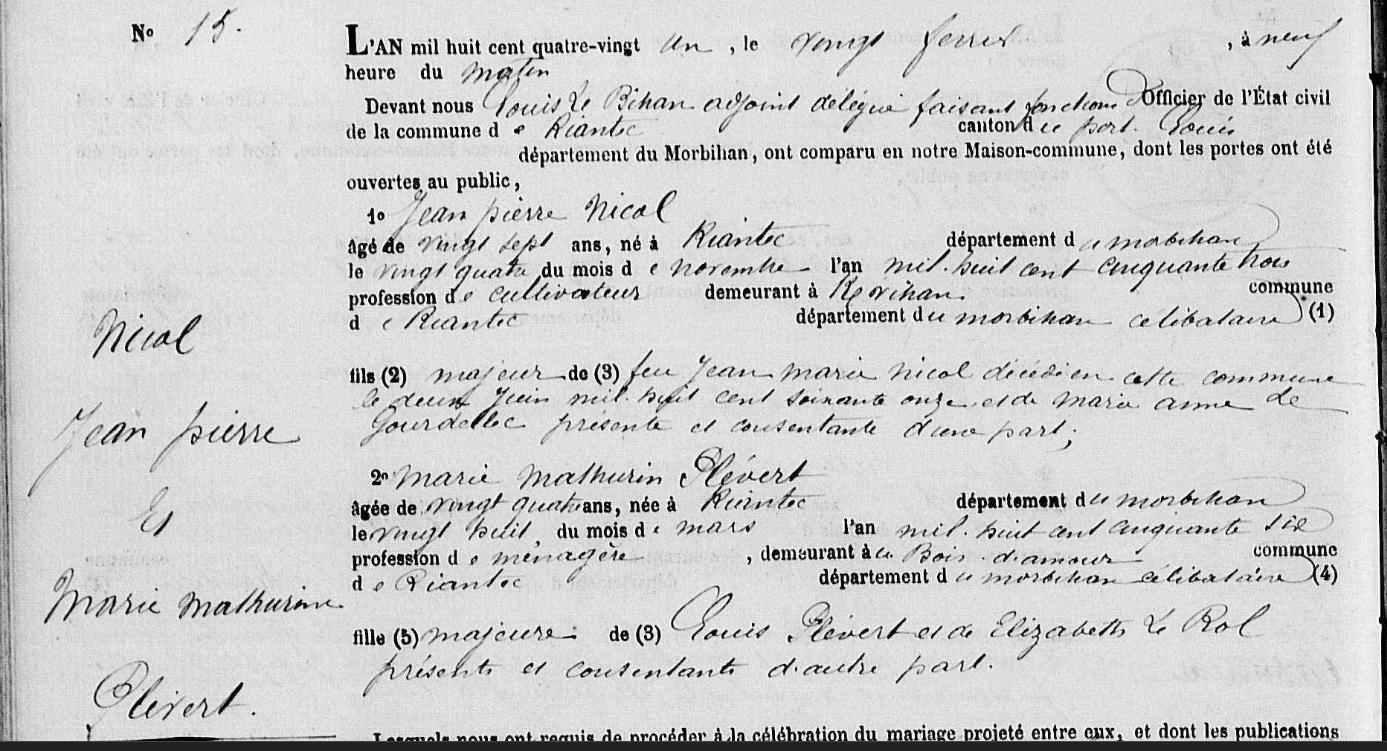 No 15.
L'AN mil huit cent quatre-vingt un, le vingt fevrier, à neuf
heure du matin
Devant nous Louis Le Bihan adjoint délégué faisant fonctions d'Officier de l'État civil
de la commune de Riantec canton du port. Louis
département du Morbihan, ont comparu en notre Maison-commune, dont les portes ont été
ouvertes au public,
1o Jean pierre Nicol
âgé de vingt sept ans, né à Riantec département du morbihan
le vingt quatre du mois de novembre l'an mil. huit cent cinquante trois
profession de cultivateur demeurant à Kervihan. commune
de Riantec département du morbihan célibataire (1)
fils (2) majeur de (3) feu Jean marie nicol décédé en cette commune
le deux Juin mil. huit cent soixante onze. et de marie anne Le
Gourdellec présente et consentante d'une part;
2o marie mathurin Plévert
âgée de vingt quatre ans, née à Riantec département du morbihan
le vingt huit, du mois de mars l'an mil. huit cent cinquante six
profession de ménagère, demeurant à u Bois. d'amour commune
de Riantec département du morbihan célibataire (4)
fille (5) majeure de (3) Louis Plévert et de Elizabeth Le Rol
présents et consentants d'autre part.
Lesquels nous ont requis de procéder à la célébration du mariage projeté entre eux, et dont les publications
Nicol
Jean pierre
Et
Marie mathurine
Plévert.